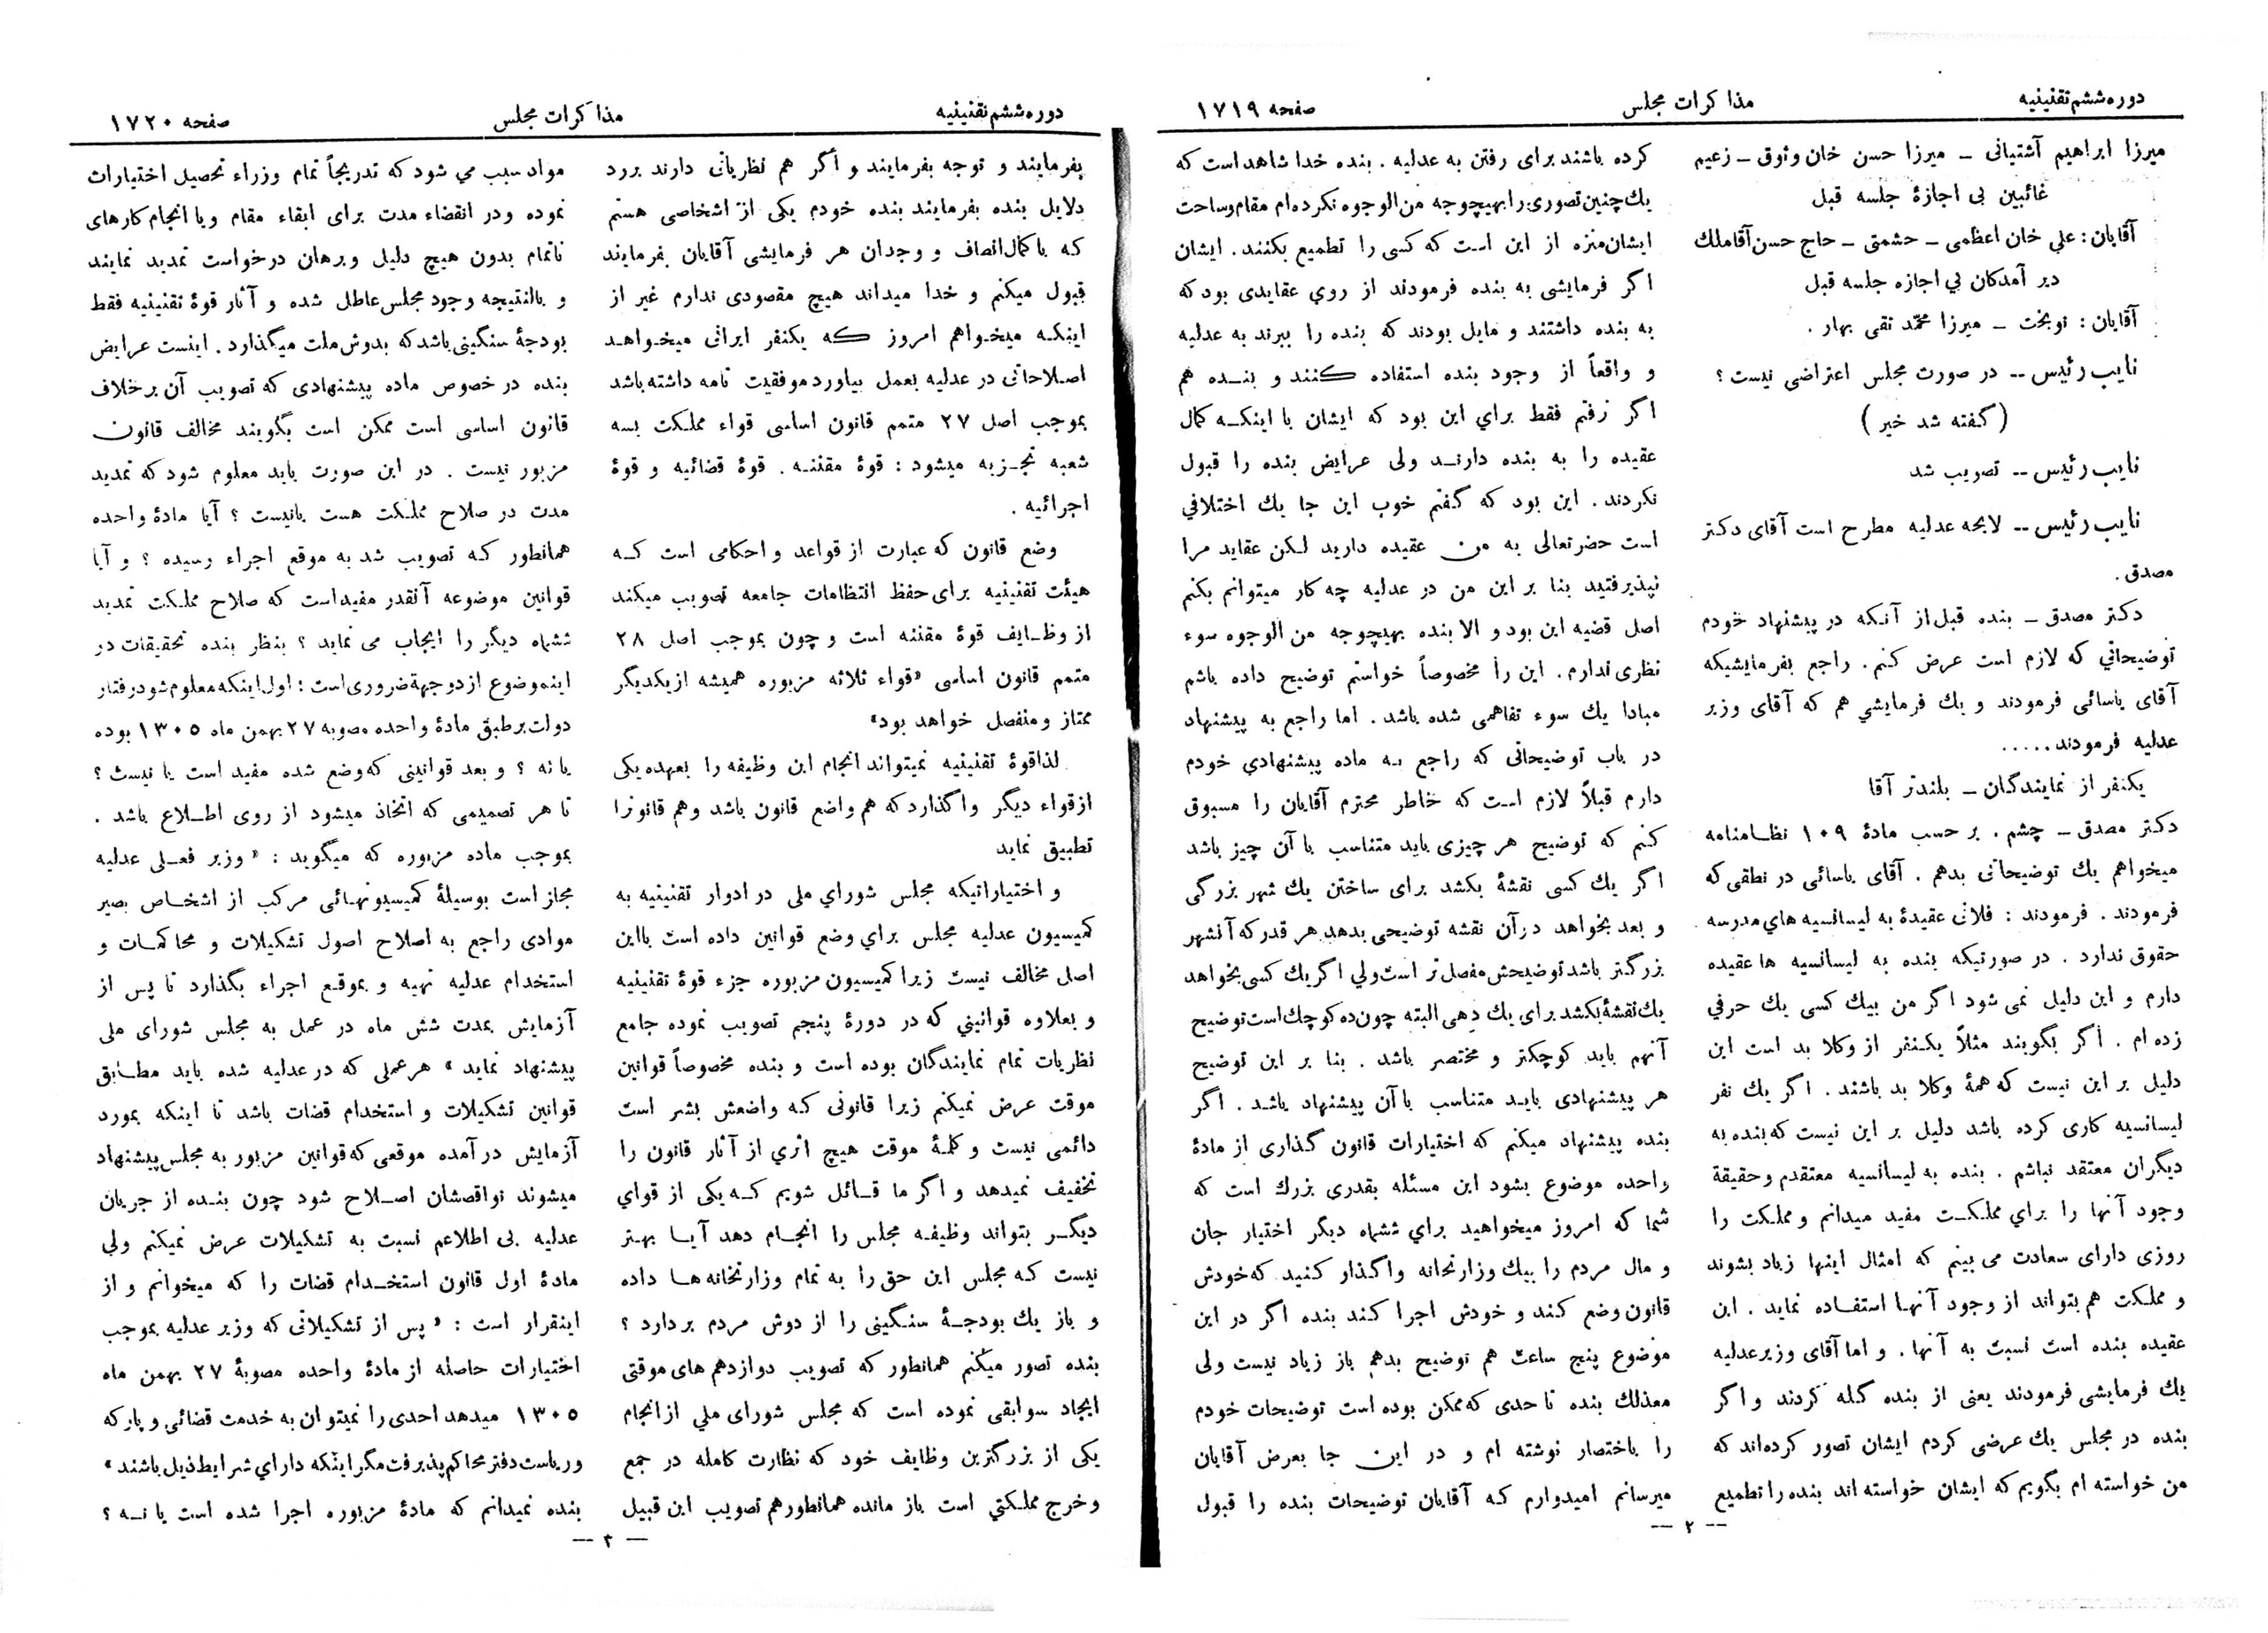 دوره ششم تقنینیه
مذاکرات مجلس
صفحه ۱۷۱۹
میرزا ابراهیم آشتیانی ــ میرزا حسن خان وثوق ــ زعیم
غائبین بی اجازهٔ جلسه قبل
آقایان : علی خان اعظمی ــ حشمتی ــ حاج حسن آقا ملک
دیر آمدکان بی اجازه جلسه قبل
آقایان : نوبخت ــ میرزا محمد تقی بهار .
نایب رئیس -- در صورت مجلس اعتراضی نیست ؟
( گفته شد خیر )
نایب رئیس -- تصویب شد
نایب رئیس -- لایحه عدلیه مطرح است آقای دکتر
مصدق .
دکتر مصدق ــ بنده قبل از آنکه در پیشنهاد خودم
توضیحاتی که لازم است عرض کنم . راجع بفرمایشیکه
آقای یاسائی فرمودند و یك فرمایشی هم که آقای وزیر
عدلیه فرمودند .....
یکنفر از نمایندگان ــ بلندتر آقا
دکتر مصدق ــ چشم . بر حسب مادهٔ ۱۰۹ نظامنامه
میخواهم یك توضیحاتی بدهم . آقای یاسائی در نطقی که
فرمودند . فرمودند : فلانی عقیدهٔ به لیسانسیه های مدرسه
حقوق ندارد . در صورتیکه بنده به لیسانسیه ها عقیده
دارم و این دلیل نمی شود اگر من بیك کسی یك حرفی
زده ام . اگر بگویند مثلاً یکنفر از وکلا بد است این
دلیل بر این نیست که همهٔ وکلا بد باشند . اگر یك نفر
لیسانسیه کاری کرده باشد دلیل بر این نیست که بنده به
دیگران معتقد نباشم . بنده به لیسانسیه معتقدم و حقیقة
وجود آنها را برای مملکت مفید میدانم و مملکت را
روزی دارای سعادت می بینم که امثال اینها زیاد بشوند
و مملکت هم بتواند از وجود آنها استفاده نماید . این
عقیده بنده است نسبت به آنها . و اما آقای وزیر عدلیه
یك فرمایشی فرمودند یعنی از بنده گله کردند و اگر
بنده در مجلس یك عرضی کردم ایشان تصور کرده‌اند که
من خواسته ام بگویم که ایشان خواسته اند بنده را تطمیع
کرده باشند برای رفتن به عدلیه . بنده خدا شاهد است که
یك چنین تصوری را بهیچوجه من الوجوه نکرده ام مقام و ساحت
ایشان منزه از این است که کسی را تطمیع بکنند . ایشان
اگر فرمایشی به بنده فرمودند از روی عقایدی بود که
به بنده داشتند و مایل بودند که بنده را ببرند به عدلیه
و واقعاً از وجود بنده استفاده کنند و بنده هم
اگر نرفتم فقط برای این بود که ایشان با اینکه کمال
عقیده را به بنده دارند ولی عرایض بنده را قبول
نکردند . این بود که گفتم خوب این جا یك اختلافی
است حضرتعالی به من عقیده دارید لکن عقاید مرا
نپذیرفتید بنا بر این من در عدلیه چه کار میتوانم بکنم
اصل قضیه این بود و الا بنده بهیچوجه من الوجوه سوء
نظری ندارم . این را مخصوصاً خواستم توضیح داده باشم
مبادا یك سوء تفاهمی شده باشد . اما راجع به پیشنهاد
در باب توضیحاتی که راجع به ماده پیشنهادی خودم
دارم قبلاً لازم است که خاطر محترم آقایان را مسبوق
کنم که توضیح هر چیزی باید متناسب با آن چیز باشد
اگر یك کسی نقشهٔ بکشد برای ساختن یك شهر بزرگی
و بعد بخواهد در آن نقشه توضیحی بدهد هر قدر که آنشهر
بزرگتر باشد توضیحش مفصل تر است ولی اگر یك کسی بخواهد
یك نقشهٔ بکشد برای یك دهی البته چون ده کوچك است توضیح
آنهم باید کوچکتر و مختصر باشد . بنا بر این توضیح
هر پیشنهادی باید متناسب با آن پیشنهاد باشد . اگر
بنده پیشنهاد میکنم که اختیارات قانون گذاری از مادهٔ
واحده موضوع بشود این مسئله بقدری بزرك است که
شما که امروز میخواهید برای ششماه دیگر اختیار جان
و مال مردم را بیك وزارتخانه واگذار کنید که خودش
قانون وضع کند و خودش اجرا کند بنده اگر در این
موضوع پنج ساعت هم توضیح بدهم باز زیاد نیست ولی
معذلك بنده تا حدی که ممکن بوده است توضیحات خودم
را باختصار نوشته ام و در این جا بعرض آقایان
میرسانم امیدوارم که آقایان توضیحات بنده را قبول
-- ۲ --
دوره ششم تقنینیه
مذاکرات مجلس
صفحه ۱۷۲۰
بفرمایند و توجه بفرمایند و اگر هم نظریاتی دارند بررد
دلایل بنده بفرمایند بنده خودم یکی از اشخاصی هستم
که با کمال انصاف و وجدان هر فرمایشی آقایان بفرمایند
قبول میکنم و خدا میداند هیچ مقصودی ندارم غیر از
اینکه میخواهم امروز که یکنفر ایرانی میخواهد
اصلاحاتی در عدلیه بعمل بیاورد موفقیت تامه داشته باشد
بموجب اصل ۲۷ متمم قانون اساسی قواء مملکت بسه
شعبه تجزیه میشود : قوهٔ مقننه . قوهٔ قضائیه و قوهٔ
اجرائیه .
وضع قانون که عبارت از قواعد و احکامی است که
هیئت تقنینیه برای حفظ انتظامات جامعه تصویب میکند
از وظایف قوهٔ مقننه است و چون بموجب اصل ۲۸
متمم قانون اساسی «قواء ثلاثه مزبوره همیشه از یکدیگر
ممتاز و منفصل خواهد بود»
لذا قوهٔ تقنینیه نمیتواند انجام این وظیفه را بعهده یکی
از قواء دیگر واگذارد که هم واضع قانون باشد و هم قانونرا
تطبیق نماید
و اختیاراتیکه مجلس شورای ملی در ادوار تقنینیه به
کمیسیون عدلیه مجلس برای وضع قوانین داده است با این
اصل مخالف نیست زیرا کمیسیون مزبوره جزء قوهٔ تقنینیه
و بعلاوه قوانینی که در دورهٔ پنجم تصویب نموده جامع
نظریات تمام نمایندگان بوده است و بنده مخصوصاً قوانین
موقت عرض نمیکنم زیرا قانونی که واضعش بشر است
دائمی نیست و کلمهٔ موقت هیچ اثری از آثار قانون را
تخفیف نمیدهد و اگر ما قائل شویم که یکی از قوای
دیگر بتواند وظیفه مجلس را انجام دهد آیا بهتر
نیست که مجلس این حق را به تمام وزارتخانه ها داده
و باز یك بودجهٔ سنگینی را از دوش مردم بردارد ؟
بنده تصور میکنم همانطور که تصویب دوازدهم های موقتی
ایجاد سوابقی نموده است که مجلس شورای ملی از انجام
یکی از بزرگترین وظایف خود که نظارت کامله در جمع
و خرج مملکتی است باز مانده همانطور هم تصویب این قبیل
مواد سبب می شود که تدریجاً تمام وزراء تحصیل اختیارات
نموده ودر انقضاء مدت برای ابقاء مقام ویا انجام کارهای
ناتمام بدون هیچ دلیل و برهان درخواست تمدید نمایند
و بالنتیجه وجود مجلس عاطل شده و آثار قوهٔ تقنینیه فقط
بودجهٔ سنگینی باشد که بدوش ملت میگذارد . اینست عرایض
بنده در خصوص ماده پیشنهادی که تصویب آن برخلاف
قانون اساسی است ممکن است بگویند مخالف قانون
مزبور نیست . در این صورت باید معلوم شود که تمدید
مدت در صلاح مملکت هست یانیست ؟ آیا مادهٔ واحده
همانطور که تصویب شد به موقع اجراء رسیده ؟ و آیا
قوانین موضوعه آنقدر مفید است که صلاح مملکت تمدید
ششماه دیگر را ایجاب می نماید ؟ بنظر بنده تحقیقات در
اینموضوع از دو جهة ضروری است : اول اینکه معلوم شود رفتار
دولت برطبق مادهٔ واحده مصوبه ۲۷ بهمن ماه ۱۳۰۵ بوده
یا نه ؟ و بعد قوانینی که وضع شده مفید است یا نیست ؟
تا هر تصمیمی که اتخاذ میشود از روی اطلاع باشد .
بموجب ماده مزبوره که میگوید : «وزیر فعلی عدلیه
مجاز است بوسیلهٔ کمیسیونهائی مرکب از اشخاص بصیر
موادی راجع به اصلاح اصول تشکیلات و محاکمات و
استخدام عدلیه تهیه و بموقع اجراء بگذارد تا پس از
آزمایش بمدت شش ماه در عمل به مجلس شورای ملی
پیشنهاد نماید» هرعملی که در عدلیه شده باید مطابق
قوانین تشکیلات و استخدام قضات باشد تا اینکه بمورد
آزمایش در آمده موقعی که قوانین مزبور به مجلس پیشنهاد
میشوند نواقصشان اصلاح شود چون بنده از جریان
عدلیه بی اطلاعم نسبت به تشکیلات عرض نمیکنم ولی
مادهٔ اول قانون استخدام قضات را که میخوانم و از
اینقرار است : «پس از تشکیلاتی که وزیر عدلیه بموجب
اختیارات حاصله از مادهٔ واحده مصوبهٔ ۲۷ بهمن ماه
۱۳۰۵ میدهد احدی را نمیتوان به خدمت قضائی و پارکه
و ریاست دفتر محاکم پذیرفت مگر اینکه دارای شرایط ذیل باشند»
بنده نمیدانم که مادهٔ مزبوره اجرا شده است یا نه ؟
— ۳ —